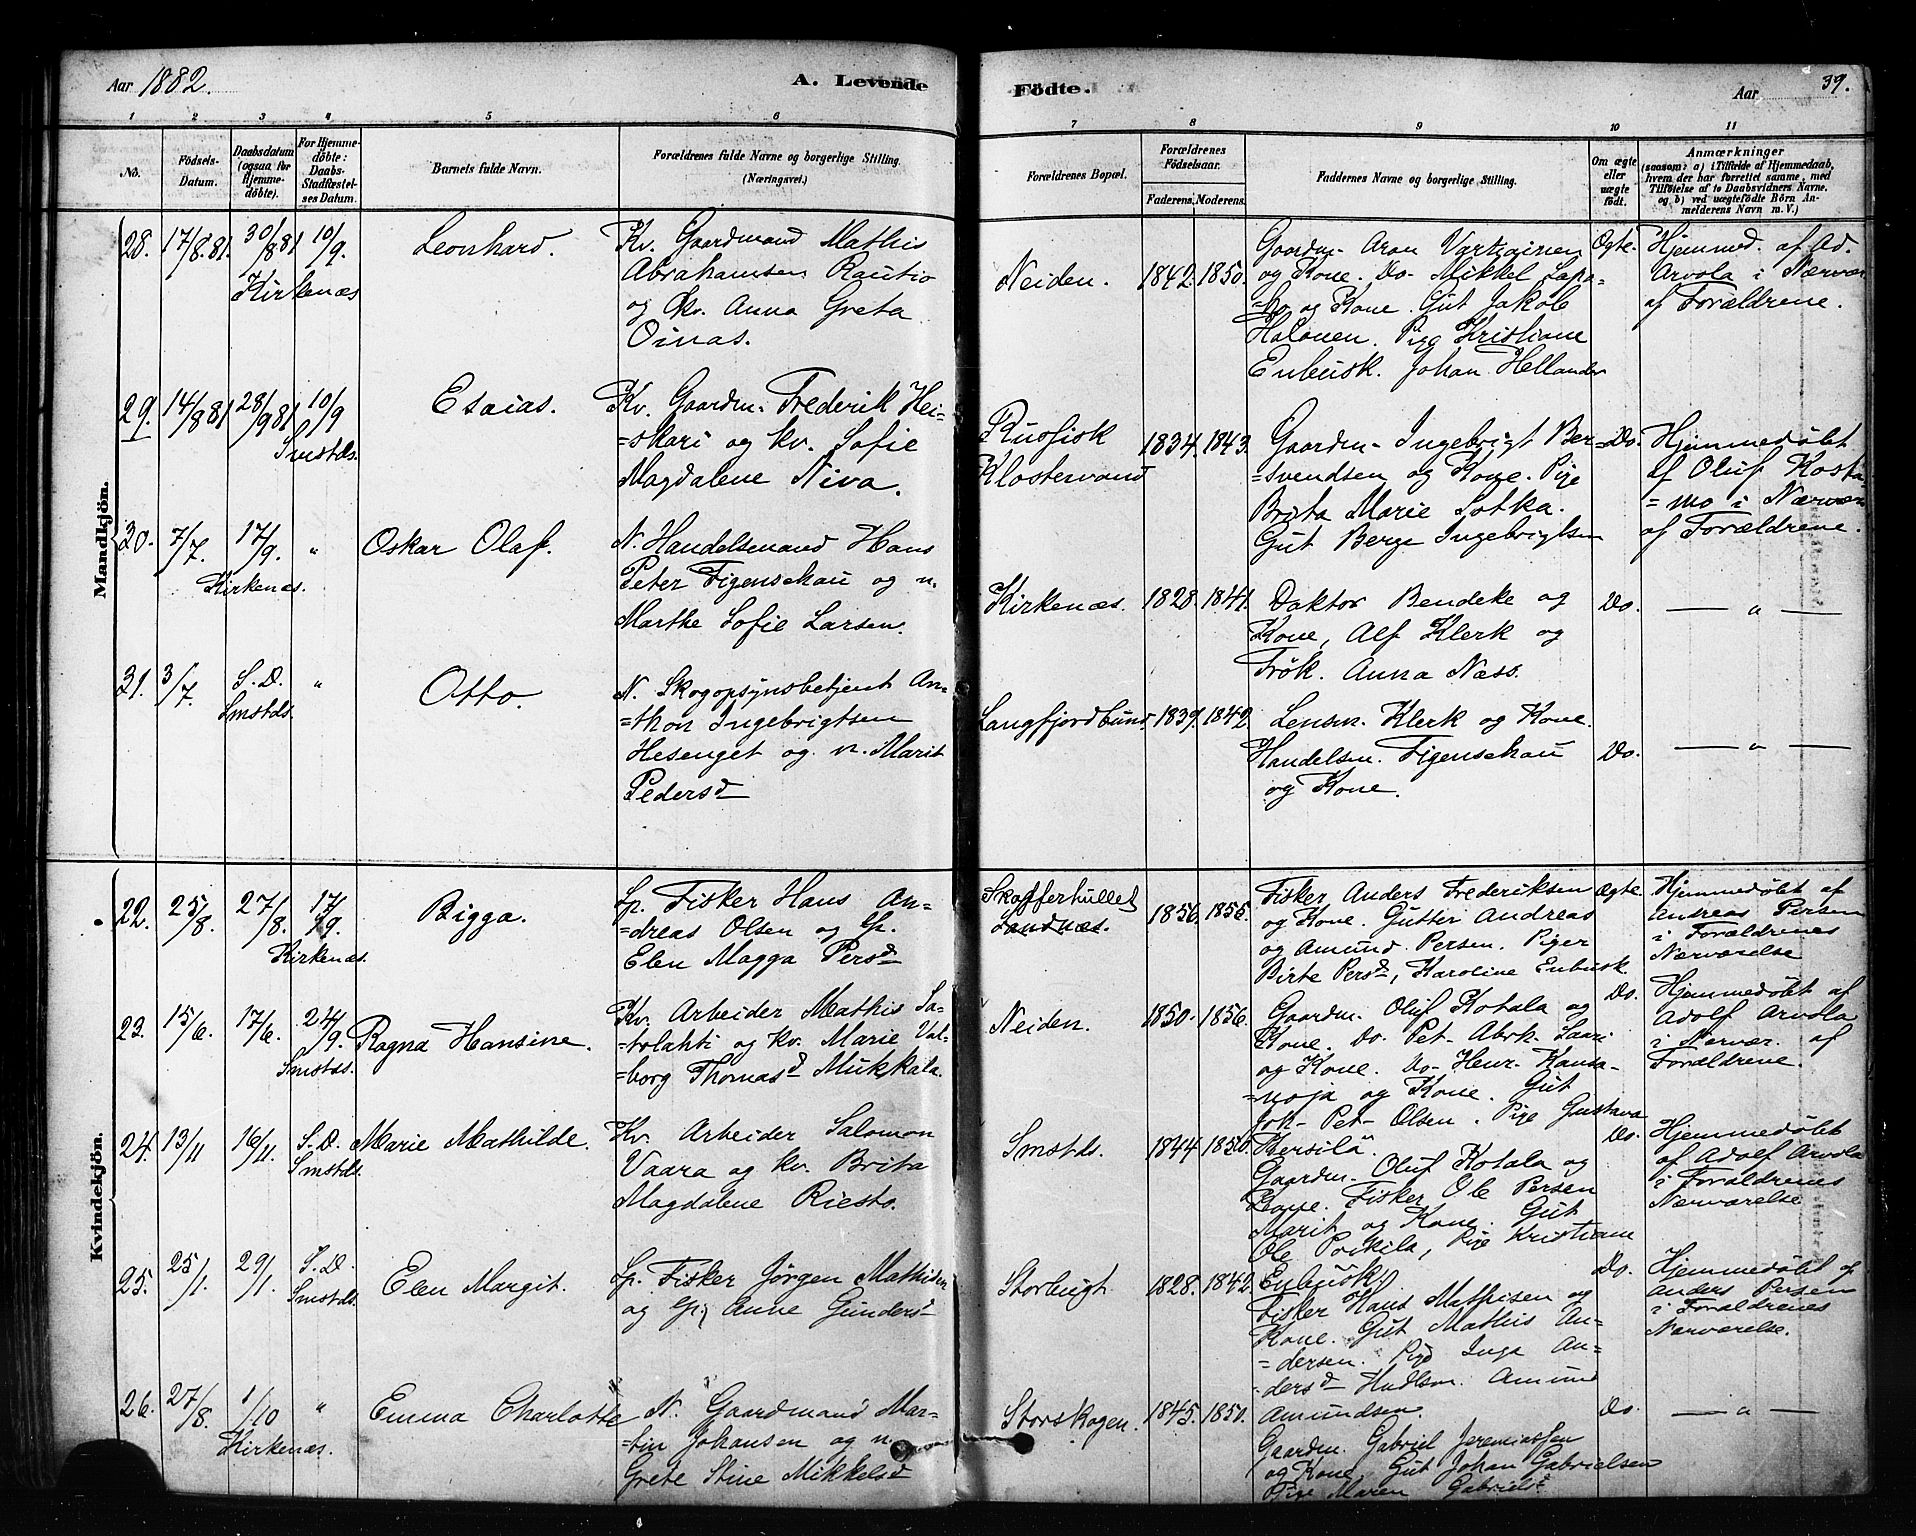 Aar 1882.
A. Levende
Födte.
Aar
39.
1 2 3 4 5 6
7 8 9 10 11
No.
Födsels-
Datum.
Daabsdatum
(ogsaa for
Hjemme-
döbte).
For Hjemme-
döbte:
Daabs-
Stadfæstel-
ses Datum.
Barnets fulde Navn.
Forældrenes fulde Navne og borgerlige Stilling.
(Næringsvei.)
Forældrenes Bopæl.
Forældrenes
Födselsaar.
Faderens. Moderens.
Faddernes Navne og borgerlige Stilling.
Om ægte
eller
uægte
födt.
Anmærkninger
(saasom: a) i Tilfælde af Hjemmedaab,
hvem der har forrettet samme, med
Tilföielse af to Daabsvidners Navne.
og b) ved uægtefödte Börn An-
melderens Navn m. V.)
Mandkjön.
28. 17/8.81. 30/8 81 10/9. Leonhard.
Kirkenæs
Kv. Gaardmand Mathis
Abrahamsen Rautio
og kv. Anna Greta
Oinas.
Neiden. 1842. 1850.
Gaardm. Aron Vartiainen
og Kone. Do. Mikkel Lapa-
og Kone. Gut Jakob
Halonen. Pige Kristiane
Enbusk. Johan Hellander
Ægte.
Hjemmed. af Ad.
Arvola i Nærvær
af Forældrene.
29. 14/8 81 28/9 81 10/9 Esaias.
Smstds.
Kv. Gaardm. Frederik Hei-
=skari og kv. Sofie
Magdalene Niva.
Russisk
Klostervand
1834. 1843.
Gaardm. Ingebrigt Ber-
=svendsen og Kone. Pige
Brita Marie Sotka.
Gut Berge Ingebrigtsen
Do.
Hjemmedøbt
af Oluf Kosta-
=mo i Nærvær
af Forældrene.
30. 7/7. 17/9. " Oskar Olaf.
Kirkenæs.
N. Handelsmand Hans
Peter Figenschau og n.
Marthe Sofie Larsen.
Kirkenæs. 1828. 1841.
Doktor Bendeke og
Kone, Alf Klerk og
Frök. Anna Næss.
Do. — " —
31. 3/7. S.D. " Otto.
Smstds.
N. Skogopsynsbetjent An-
=thon Ingebrigtsen
Hesenget og n. Marit
Pedersd
Langfjordbund. 1839. 1842.
Lensm. Klerk og Kone.
Handelsm. Figenschau
og Kone.
Do. — " —
Kvindekjön.
22. 25/8. 27/8. 17/9. Bigga.
Kirkenæs.
Lp. Fisker Hans An-
=dreas Olsen og lp.
Elen Magga Persd
Skafferhullet
Sandnæs.
1856. 1855.
Fisker Anders Frederiksen
og Kone. Gutter Andreas
og Amund Persen. Piger
Birte Persd, Karoline Enbusk
Ægte.
Hjemmedøbt af
Andreas Persen
i Forældrenes
Nærværelse
23. 15/6. 17/6. 24/9. Ragna Hansine.
Smstds.
Kv. Arbeider Mathis Sa-
=tolahti og kv. Marie Val-
=borg Thomasd Mukkala.
Neiden. 1850. 1856.
Gaardm. Oluf Kotala og
Kone. Do. Pet. Abrh. Saari
og Kone. Do. Henr. Kansa-
=noja og Kone. Gut
Joh. Pet. Olsen. Pige Gustava
Kersilä.
Do.
Hjemmedøbt af
Adolf Arvola
i Nærvær. af
Forældrene.
24. 13/11 16/11. S.D. Marie Mathilde.
Smstds.
Kv. Arbeider Salomon
Vaara og kv. Brita
Magdalene Riesto.
Smstds. 1844. 1850.
Gaardm. Oluf Kotala og
Kone. Fisker Ole Persen
Marit og Kone. Gut
Ole Poikila, Pige Kristiane
Enbusk.
Do.
Hjemmedøbt
af Adolf Arvola
i Forældrenes
Nærværelse
25. 25/1. 29/1. S.D. Elen Margit.
Smstds.
Lp. Fisker Jörgen Mathisen
og lp. Anne Gundersd
Storbugt 1828. 1842.
Fisker Hans Mathisen og
Kone. Gut Mathis An-
=dersen. Pige Inga An-
=dersd Amund
Amundsen.
Do.
Hjemmedøbt af
Anders Persen
i Forældrenes
Nærværelse.
26. 27/8. 1/10 " Emma Charlotte
Kirkenæs.
N. Gaardmand Mar-
=tin Johansen og n.
Grete Stine Mikkelsd
Storskogen. 1845. 1850.
Gaardm. Gabriel Jeremiassen
og Kone, Gut Johan Gabrielsen
Pige Maren Gabrielsd.
Do. — " —